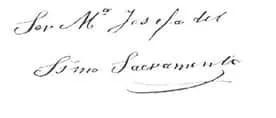 Sor Mª Josefa del
Ssmo Sacramento